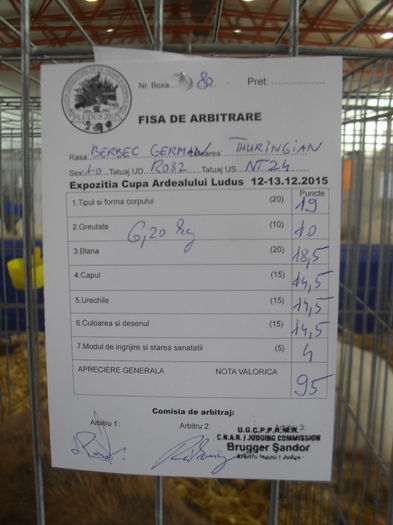 LUDUS 2015
Nr. Boxa 80 Pret: ..................
FISA DE ARBITRARE
Rasa BERBEC GERMAN Culoarea THURINGIAN
Sex 1-0 Tatuaj UD. RO82 Tatuaj US. NT24
Expozitia Cupa Ardealului Ludus 12-13.12.2015
Puncte
1.Tipul si forma corpului (20) 19
2.Greutate 6,20 kg (10) 10
3.Blana (20) 18,5
4.Capul (15) 14,5
5.Urechile (15) 14,5
6.Culoarea si desenul (15) 14,5
7.Modul de ingrijire si starea sanatatii (5) 4
APRECIERE GENERALA NOTA VALORICA 95
Comisia de arbitraj:
Arbitru 1: Arbitru 2: Arbitru 3:
U.G.C.P.P.R.M.R.
C.N.A.R. / JUDGING COMMISSION
Brugger Şandor
Judge